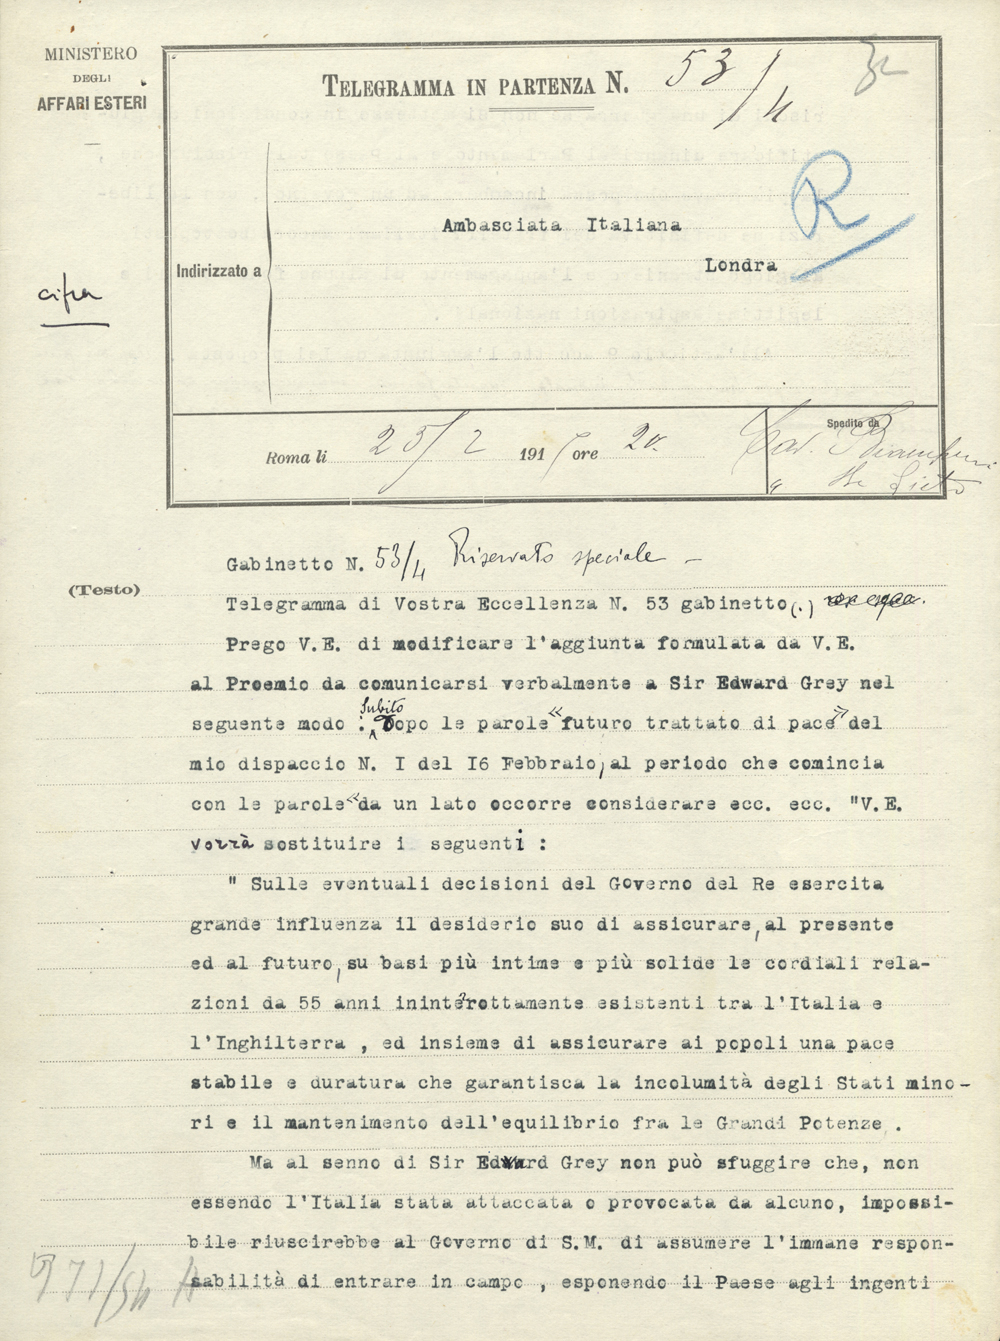 MINISTERO
DEGLI
AFFARI ESTERI
TELEGRAMMA IN PARTENZA N. 53/4
R
Indirizzato a
Ambasciata Italiana
Londra
cifra
Roma li 25/2 1915 ore 20.
Spedito da
Cav.
Gabinetto N. 53/4 Riservato speciale —
(Testo)
Telegramma di Vostra Eccellenza N. 53 gabinetto(.)
Prego V.E. di modificare l'aggiunta formulata da V.E.
al Proemio da comunicarsi verbalmente a Sir Edward Grey nel
seguente modo : Subito Dopo le parole «futuro trattato di pace» del
mio dispaccio N. I del I6 Febbraio, al periodo che comincia
con le parole «da un lato occorre considerare ecc. ecc. "V.E.
vorrà sostituire i seguenti :
" Sulle eventuali decisioni del Governo del Re esercita
grande influenza il desiderio suo di assicurare, al presente
ed al futuro, su basi più intime e più solide le cordiali rela-
zioni da 55 anni ininterottamente esistenti tra l'Italia e
l'Inghilterra , ed insieme di assicurare ai popoli una pace
stabile e duratura che garantisca la incolumità degli Stati mino-
ri e il mantenimento dell'equilibrio fra le Grandi Potenze .
Ma al senno di Sir Edward Grey non può sfuggire che, non
essendo l'Italia stata attaccata o provocata da alcuno, impossi-
bile riuscirebbe al Governo di S.M. di assumere l'immane respon-
sabilità di entrare in campo , esponendo il Paese agli ingenti